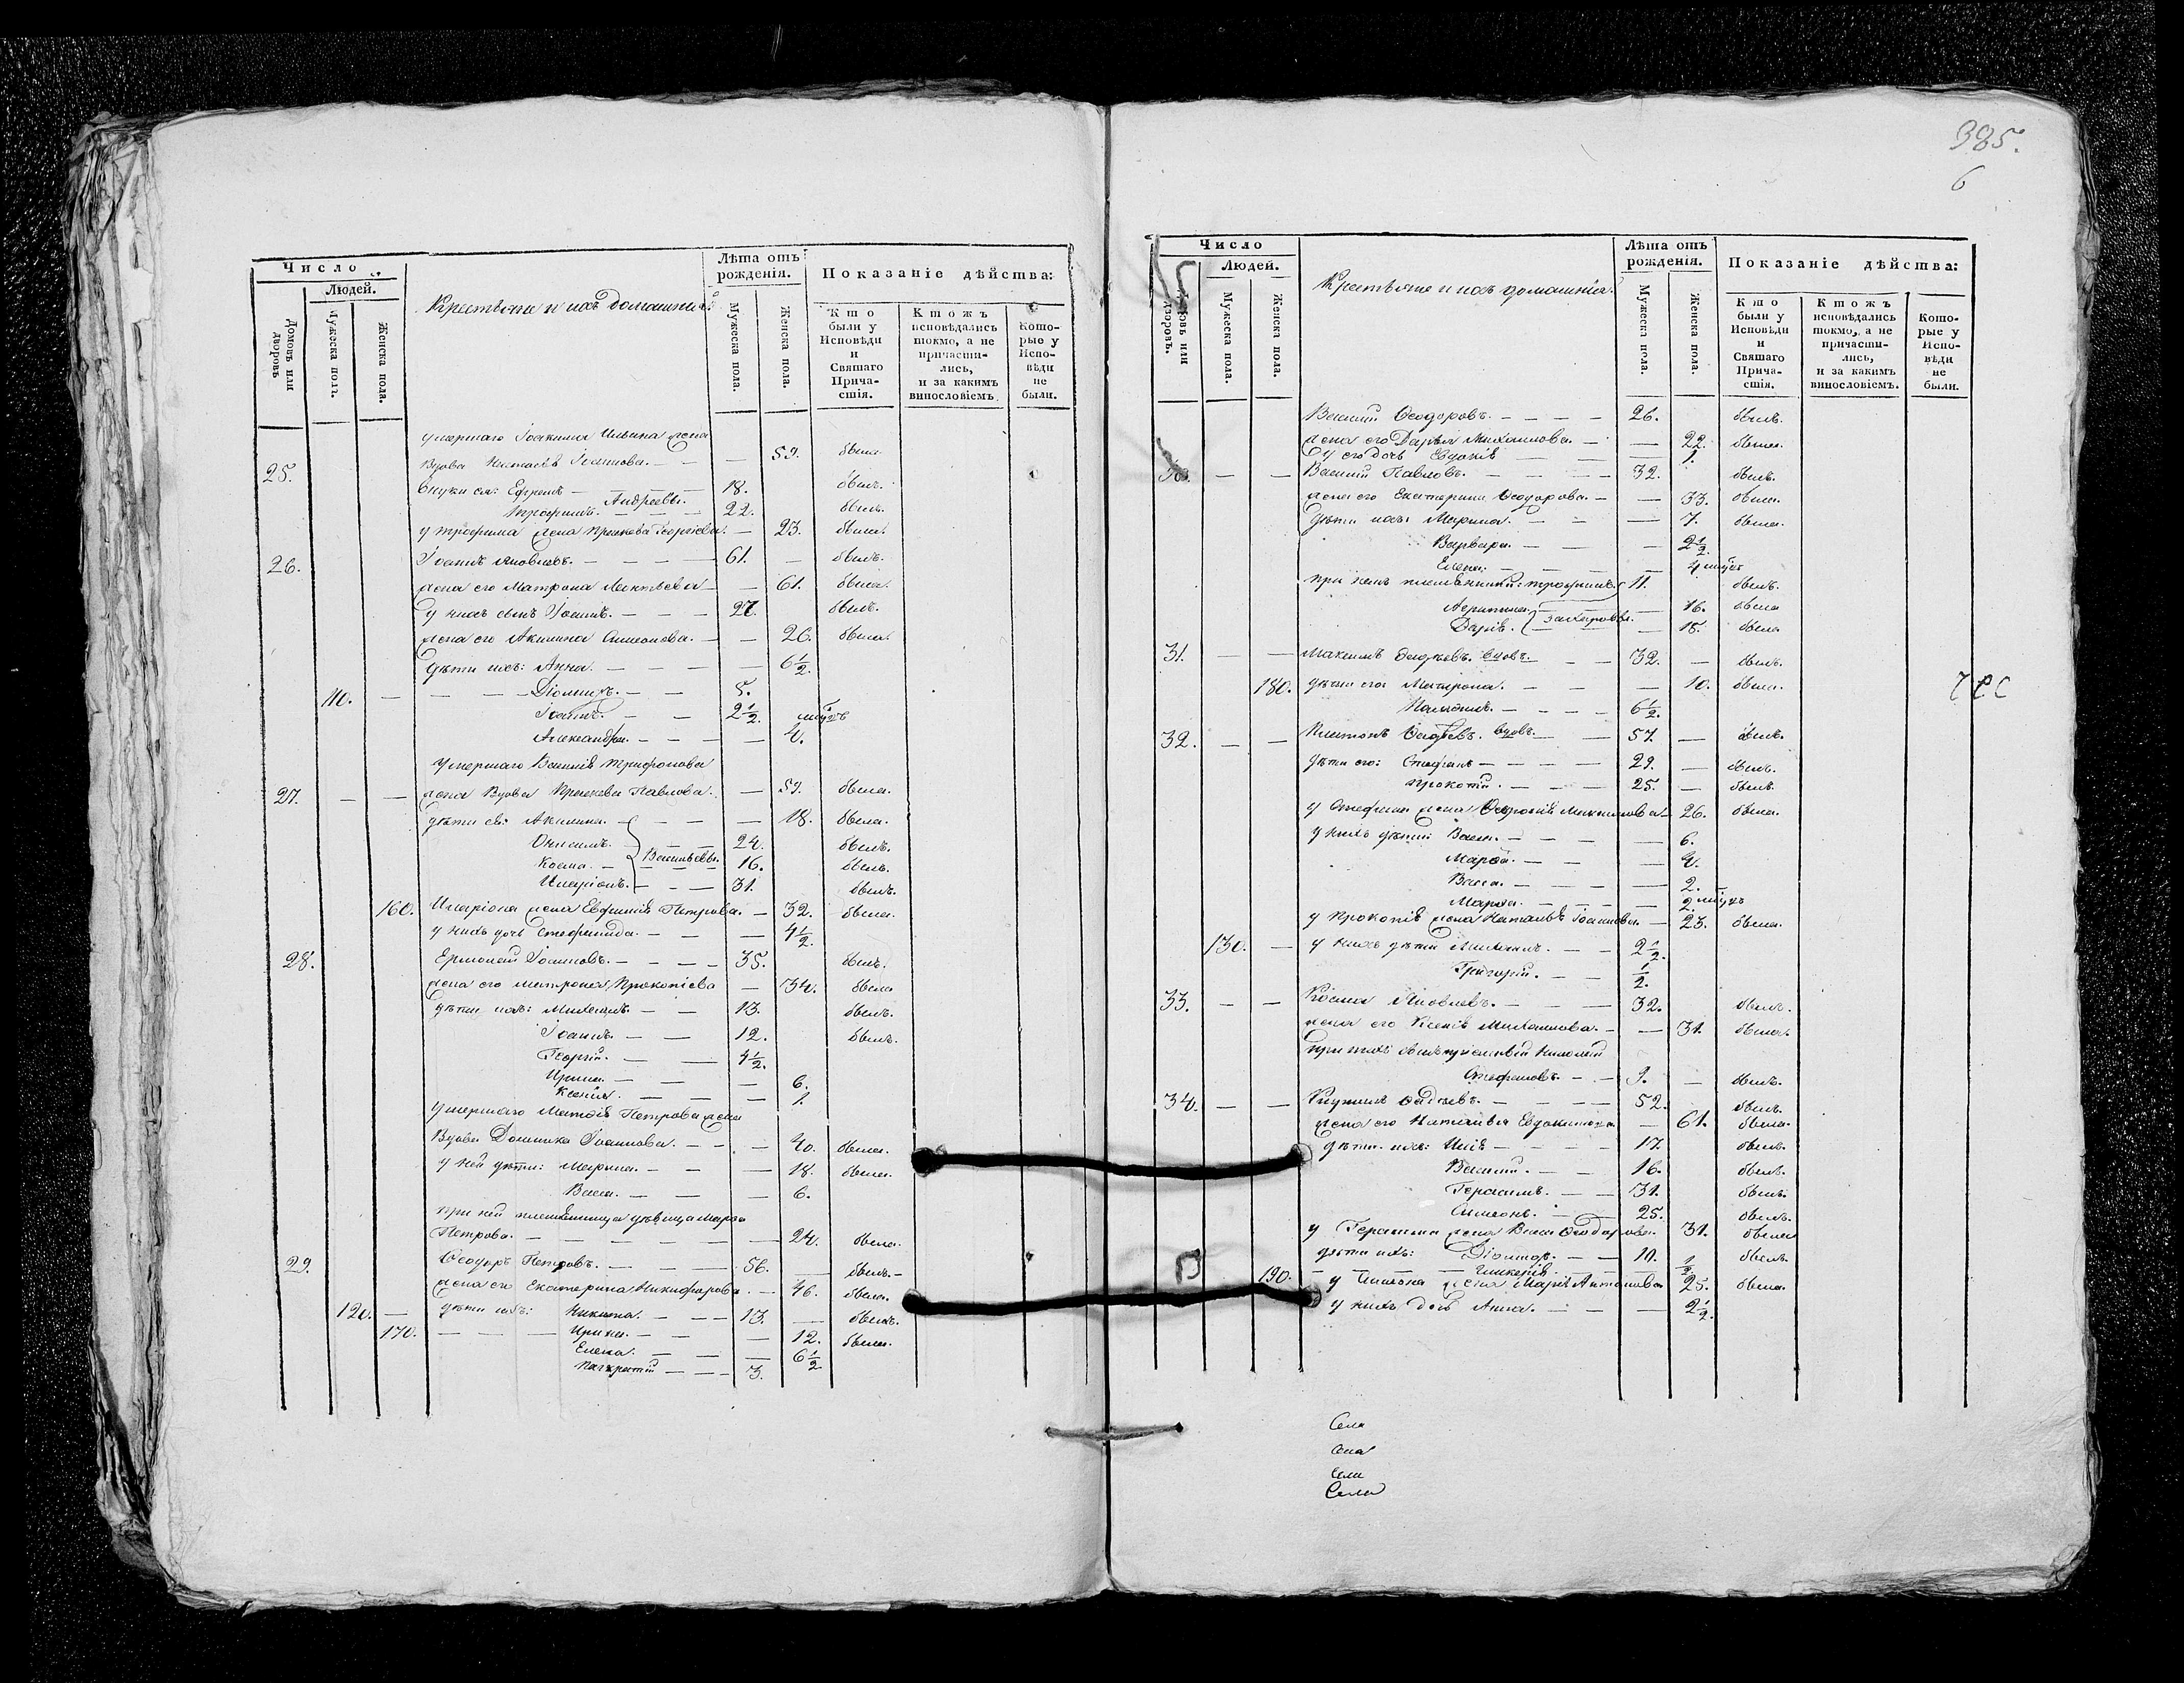 385.
6
Число
Людей.
Домовъ или дворовъ
Мужеска полъ.
Женска пола.
Крестьяне и ихъ домашнія.
Лѣта отъ рожденія.
Мужеска пола.
Женска пола.
Показаніе дѣйства:
Кто были у Исповѣди и Святаго Прича-стія.
Ктожъ исповѣдались токмо, а не причасти-лись, и за какимъ винословіемъ.
Кото-рые у Испо-вѣди не были.
умершаго Іоакима Ильина жена
25. вдова Наталія Іоаннова. — — — 59. была
внуки ея: Ефремъ — — — 18. былъ.
Трофимъ. Андреевы. — — 22. былъ.
у Трофима жена Прасковья Георгіева. — 23. была.
26. Іоаннъ Яковлевъ. — — — — 61. — былъ.
жена его Матрона Леонтьева — — 61. была.
у нихъ сынъ Іоаннъ. — — — 27. былъ.
жена его Акилина Симеонова. — — 26. была.
дѣти ихъ: Анна. — — — — 6 1/2.
110. — — — — Діомидъ. — — 5.
Іоаннъ. — — 2 1/2.
Александра. — — — — 4.
умершаго Василія Трифонова
27. — — жена вдова Прасковья Павлова. — 59. была.
дѣти ея: Акилина. — — — — 18. была.
Онисимъ. — — 24. былъ.
Косма. — Васильевы. 16. былъ.
Иларіонъ. — — — 31. былъ.
160. Иларіона жена Евфимія Петрова. — 32. была.
у нихъ дочь Стефанида. — — — 4 1/2.
28. Ермолай Іоанновъ. — — — — 35. былъ.
жена его Матрона Прокопіева — 34. была
дѣти ихъ: Михаилъ. — — 13. былъ.
Іоаннъ. — — 12. былъ.
Георгій. — — 4 1/2.
Ирина. — — — 6.
Ксенія. — — — 1.
умершаго Матвія Петрова жена
вдова Домника Іоаннова. — — — 40. была.
у ней дѣти: Марина. — — — 18. была.
Васса. — — — 6.
при ней племянница дѣвица Марѳа
Петрова. — — — — — — 24. была.
29. Ѳеодоръ Петровъ. — — — — 56. — былъ. —
жена его Екатерина Никифорова. — 46. была.
120. — дѣти ихъ: Никита. — — — 13. — былъ.
170. — — — — Ирина. — — — 12. была.
Елена. — — — 6 1/2
Панкратій — — — 3.
Число
Людей.
Домовъ или дворовъ.
Мужеска пола.
Женска пола.
Крестьяне и ихъ домашнія.
Лѣта отъ рожденія.
Мужеска пола.
Женска пола.
Показаніе дѣйства:
Кто были у Исповѣди и Святаго Прича-стія.
Ктожъ исповѣдались токмо, а не причасти-лись, и за какимъ винословіемъ.
Кото-рые у Испо-вѣди не были.
Василій Ѳеодоровъ. — — — — 26. былъ.
жена его Дарья Михаилова. — — 22. была.
у его дочь Евдокія — — — 1.
30. — — Василій Павловъ. — — — — 32. былъ.
жена его Екатерина Ѳеодорова. — — 33. была.
дѣти ихъ: Марина. — — — 7. была.
Варвара. — — — 2 1/2.
Елена. — — — — 4
при немъ племянники: Трофимъ. 11. былъ.
Агрипина. — — 16. была
Дарія. Захаровы. — 18. была
31. — — Максимъ Ѳадѣевъ. вдовъ. — — 32. — былъ.
180. дѣти его Матрона. — — — — 10. была.
— — — — 6 1/2.
32. — — Платонъ Ѳадѣевъ. вдовъ. — — 57. — былъ.
дѣти его: Стефанъ — — — — 29. — былъ.
Прокопій. — — — 25. — былъ.
у Стефана жена Ѳевронія Максимова — 26. была.
у нихъ дѣти: Васса. — — — 6.
Марѳа. — — — 4.
Васса. — — — — 2.
Марѳа. — — — — 2
у Прокопія жена Наталья Іоаннова. — 23. была.
130. — у нихъ дѣти Михаилъ. — — 2 1/2.
Григорій. — — 1/2.
33. — — Косма Яковлевъ. — — — — 32. былъ.
жена его Ксенія Михаилова. — — 31. была.
при нихъ Николай
Стефановъ. — — 9. — былъ.
34. — — Ѳадѣевъ. — — — — 52. былъ.
жена его Наталья Евдокимова — 61. была.
дѣти ихъ: Илія — — — — 17. былъ.
Василій. — — — 16. былъ.
Герасимъ. — — 31. былъ.
Симеонъ. — — 25. былъ.
у Герасима жена Васса Ѳеодорова. 31. была
дѣти ихъ: — — 10. былъ
— — — — Гликерія. — — — 1/2
190. у Симеона жена Марія Антонова 25. была.
у нихъ дочь Анна. — — — 2 1/2.
Села
Села
Села
Села